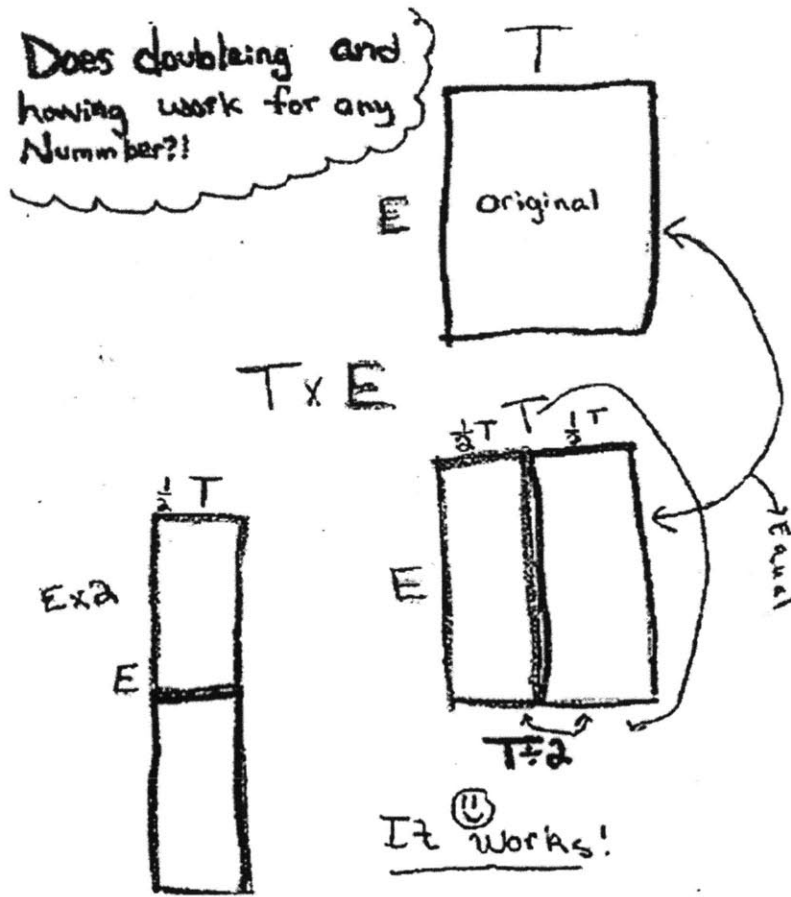 Does doubleing and
having work for any
Nummber?!
T
E
original
T x E
T
½ T ½ T
E
Equal
T÷2
½ T
Ex2
E
It works!